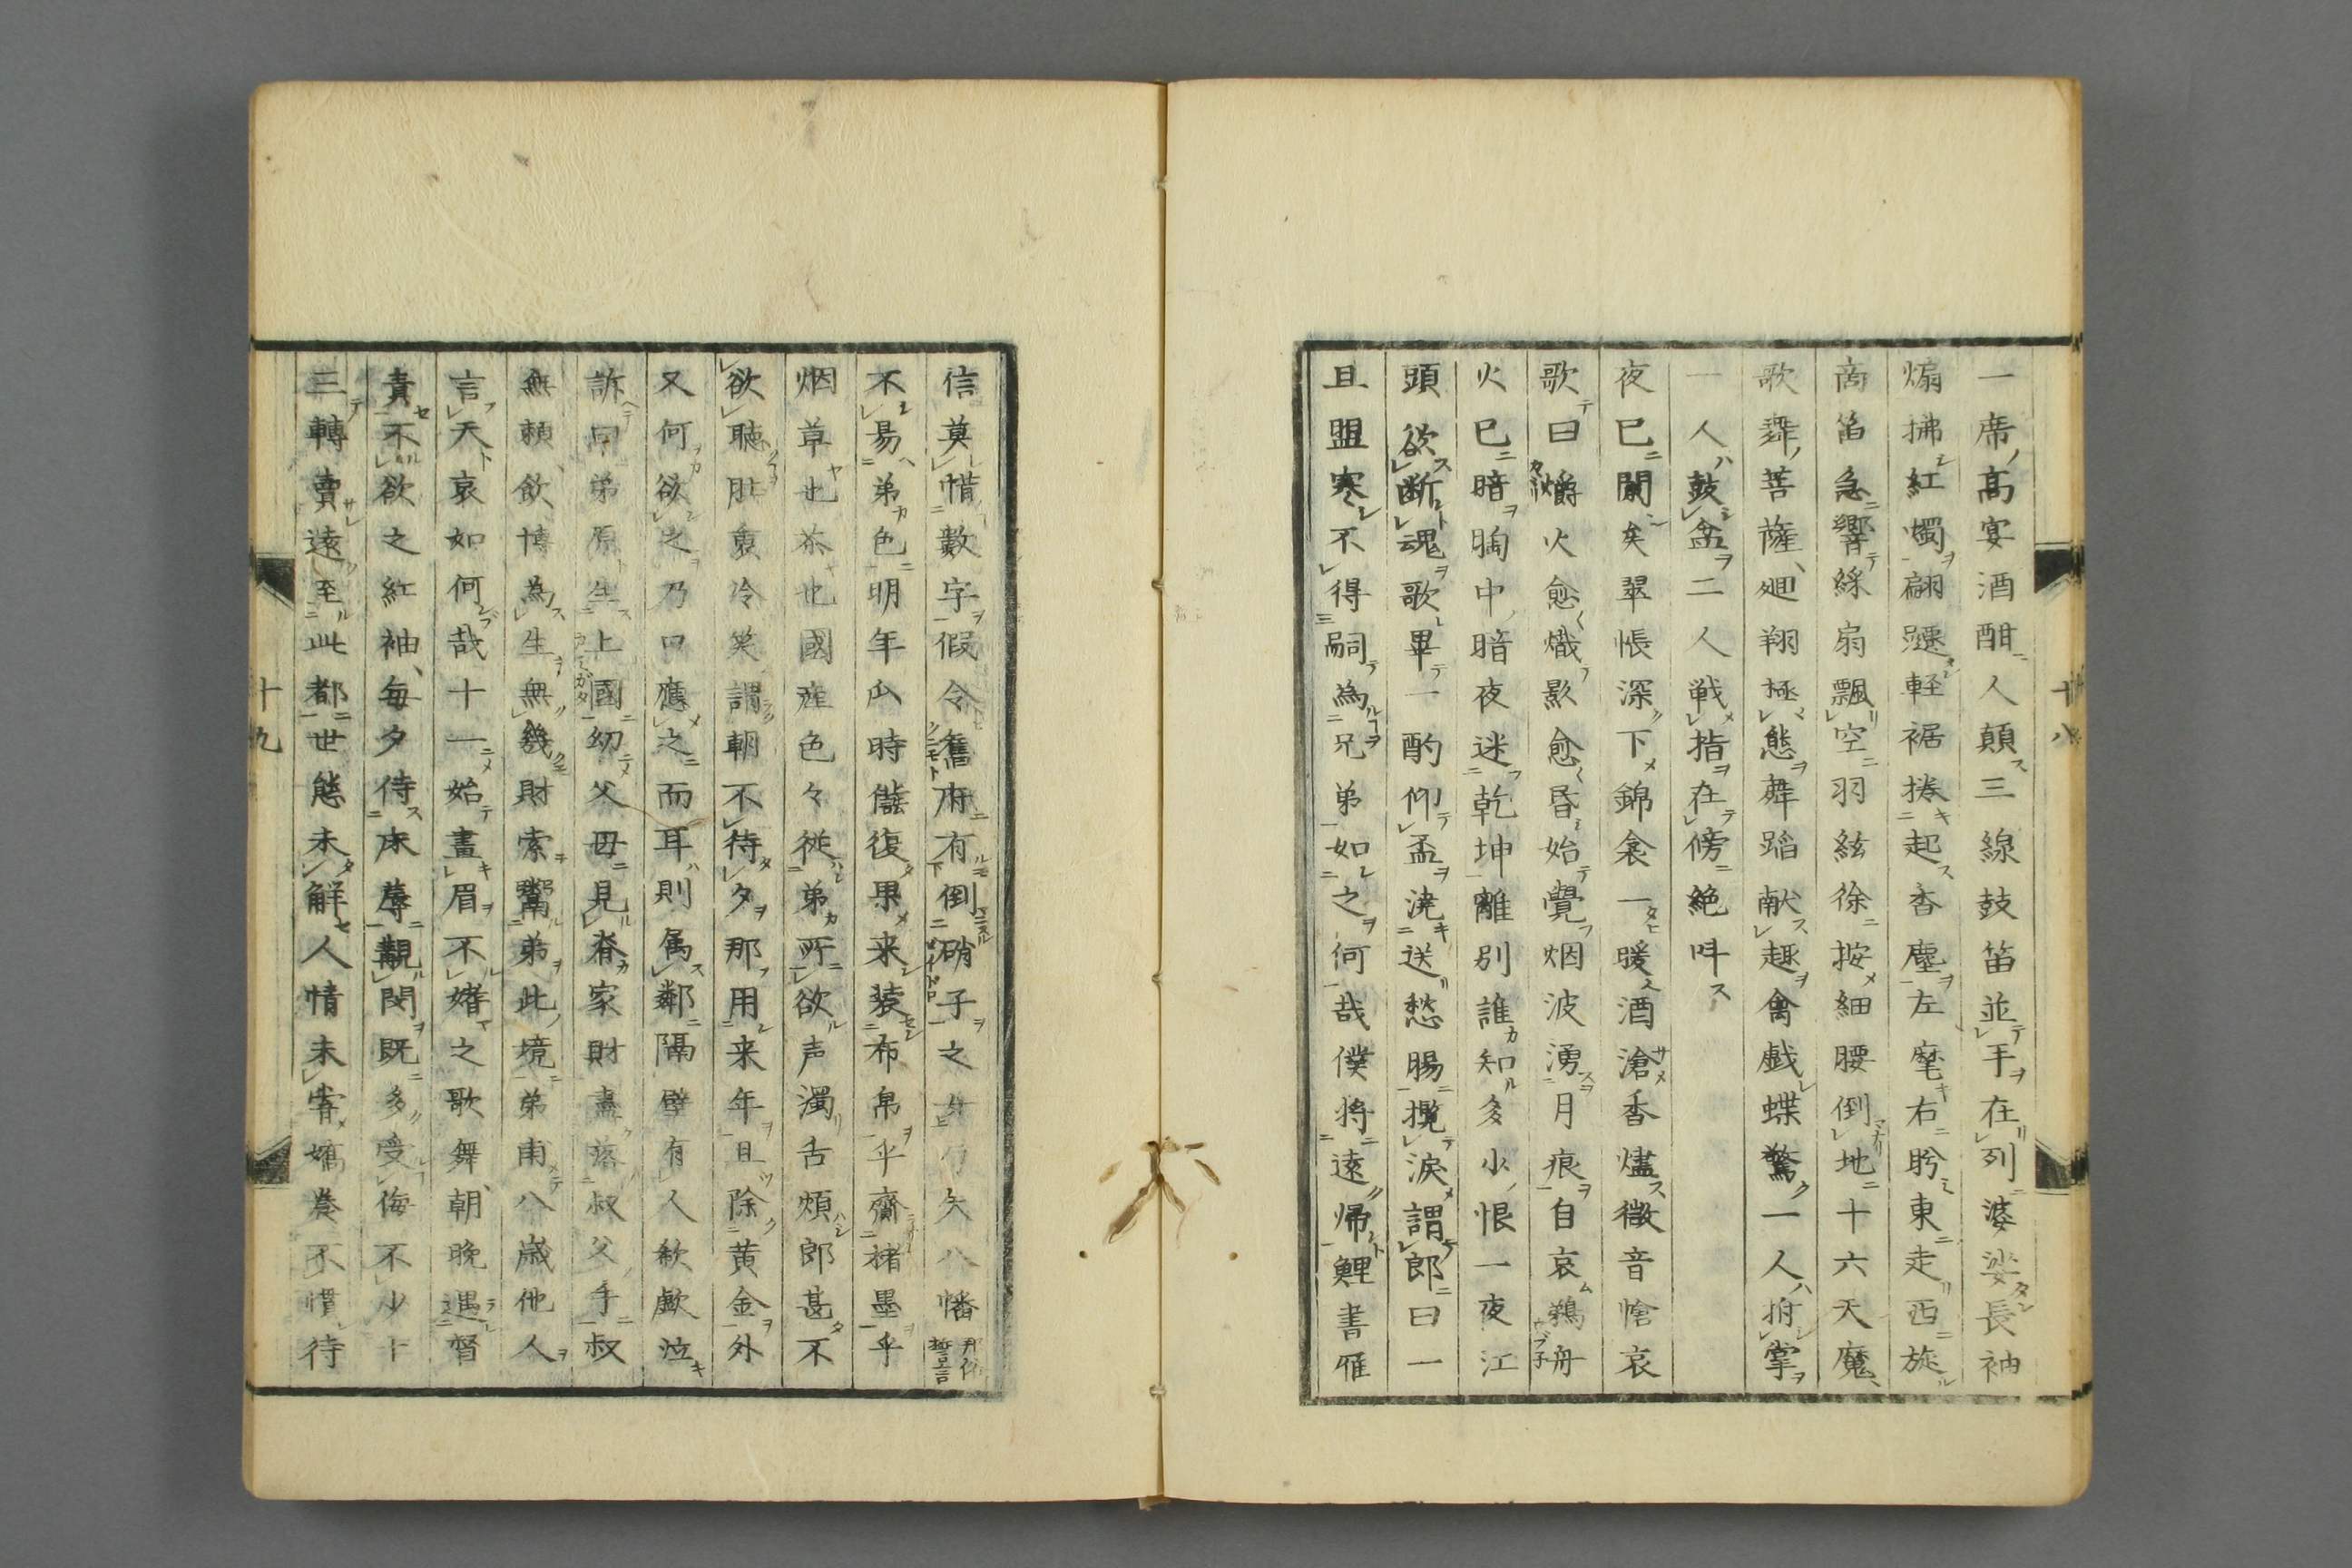 一席高宴酒酣人顛三線鼓笛並手在列婆娑長袖
煽拂紅燭翩躚軽裾捲起香塵左麾右盻東走西旋
商笛急響綵扇飄空羽絃徐按細腰倒地十六天魔
歌舞菩薩廻翔極態舞蹈献趣禽戯蝶驚一人拊掌
一人鼓盆二人戦指在傍絶呌
夜已闌矣翠帳深下錦衾一暖酒滄香燼微音愴哀
歌曰爝火愈熾影愈昏始覺烟波湧月痕自哀鵜舟
火已暗胸中暗夜迷乾坤離別誰知多少恨一夜江
頭欲断魂歌畢一酌仰盃澆送愁腸攬涙謂郎曰一
且盟寒不得嗣為兄弟如之何哉僕将遠帰鯉書雁
十八
信莫惜數字假令舊府有倒硝子之女乃矢八幡
不易弟色明年 時讎復果来装布帛乎齎楮墨乎
烟草也茶也國産色々従弟所欲声濁舌煩郎甚不
欲聴肚裏冷笑謂朝不待夕那用来年且除黄金外
又何欲之乃口應之而耳則属鄰隔壁有人欷歔泣
訴曰弟原生上國幼父母見脊家財盡落叔父手叔
無頼飲博為生無幾財索鬻弟此境弟甫八歳他人
言天哀如何哉十一始畫眉不嫿之歌舞朝晩遇督
責不欲之紅袖毎夕侍床辱覯閔既多受侮不少十
三轉賣遠至此都世態未解人情未審嬌養不慣待
十九